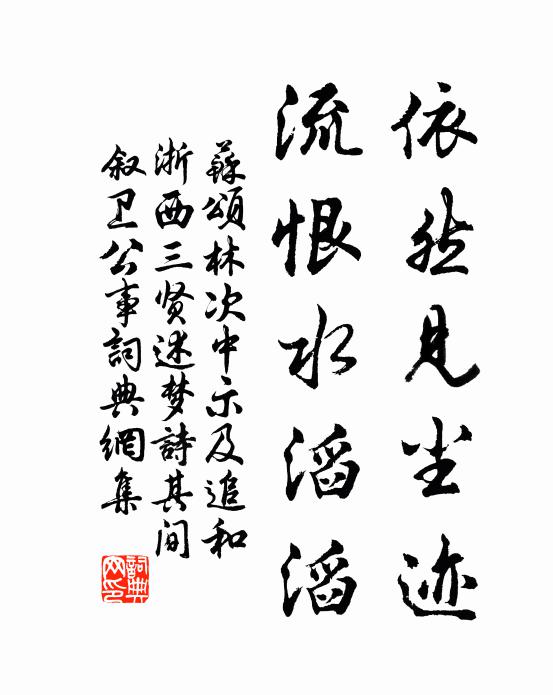 依然見尘迹
流恨水滔滔
蘇頌林次中示及追和
浙西三贤述梦詩其间
叙卫公事詞典網集
詞典网印